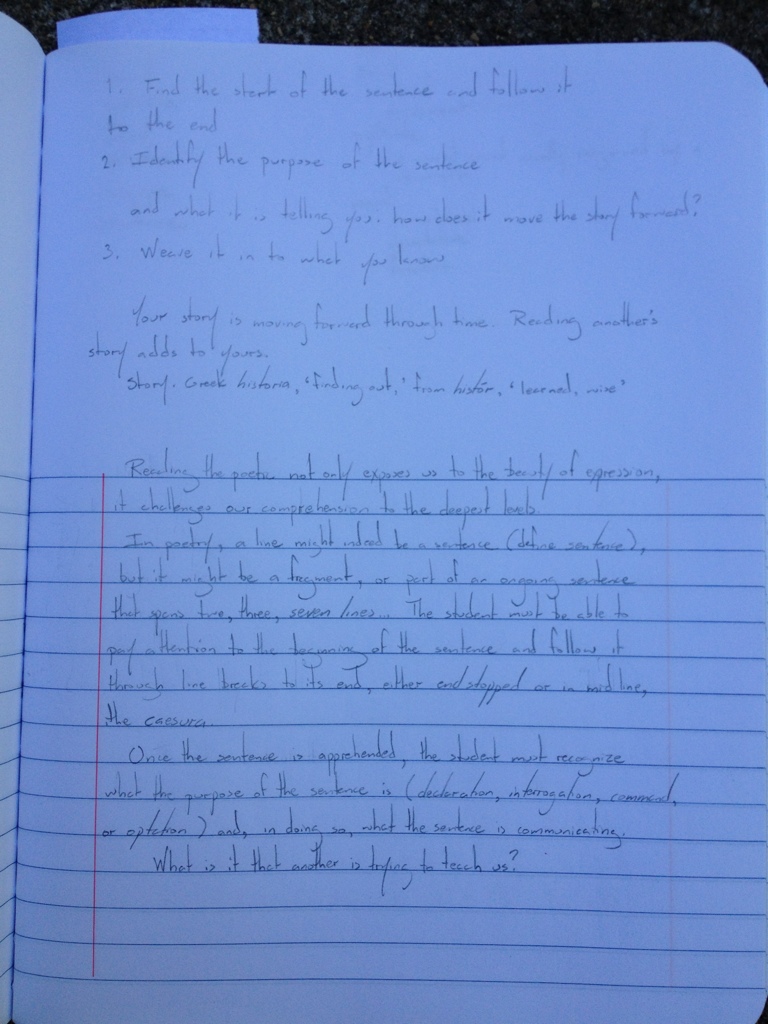 1. Find the start of the sentence and follow it
to the end
2. Identify the purpose of the sentence
and what it is telling you. how does it move the story forward?
3. Weave it in to what you know
Your story is moving forward through time. Reading another's
story adds to yours.
Story. Greek historia, 'finding out,' from histōr, 'learned, wise'
Reading the poetic not only exposes us to the beauty of epression,
it challenges our comprehension to the deepest levels.
In poetry, a line might indeed be a sentence (define sentence),
but it might be a fragment, or part of an ongoing sentence
that spans two, three, seven lines... The student must be able to
pay attention to the beginning of the sentence and follow it
through line breaks to its end, either end stopped or in mid line,
the caesura.
Once the sentence is apprehended, the student must recognize
what the purpose of the sentence is (declaration, interrogation, command,
or optation) and, in doing so, what the sentence is communicating.
What is it that another is trying to teach us?